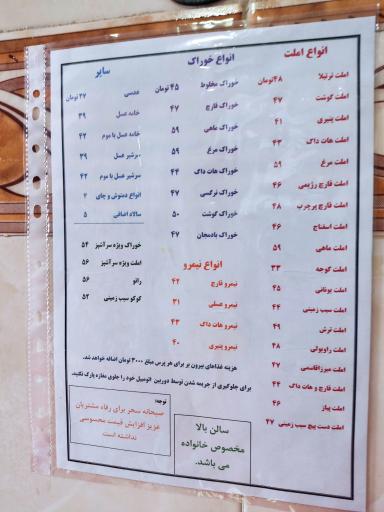 انواع املت
املت تریلا ۴۸تومان
املت گوشت ۴۷
املت پنیری ۴۱
املت هات داگ ۴۳
املت مرغ ۵۹
املت قارچ رژیمی ۴۶
املت قارچ پرچرب ۴۸
املت اسفناج ۴۶
املت ماهی ۵۹
املت گوجه ۳۳
املت یونانی ۴۵
املت سیب زمینی ۴۴
املت ترش ۴۹
املت راویولی ۴۸
املت میرزاقاسمی ۴۷
املت قارچ و هات داگ ۴۴
املت پیاز ۴۶
املت دست پیچ سیب زمینی ۴۷
انواع خوراک
خوراک مخلوط ۴۵ تومان
خوراک قارچ ۴۷
خوراک ماهی ۵۹
خوراک مرغ ۵۹
خوراک هات داگ ۴۴
خوراک نرگسی ۴۷
خوراک گوشت ۵۰
خوراک بادمجان ۴۷
انواع نیمرو
نیمرو قارچ ۴۲
نیمرو عسلی ۳۱
نیمرو هات داگ ۴۳
نیمرو پنیری ۴۰
سایر
عدسی ۲۷ تومان
خامه عسل ۳۹
خامه عسل با موم ۴۲
سرشیر عسل ۳۹
سرشیر عسل با موم ۴۲
انواع دمنوش و چای ۴
سالاد اضافی ۵
خوراک ویژه سرآشپز ۵۴
املت ویژه سرآشپز ۵۶
راتو ۵۶
کوکو سیب زمینی ۵۲
هزینه غذاهای بیرون بر برای هر پرس مبلغ ۳۰۰۰ تومان اضافه خواهد شد.
برای جلوگیری از جریمه شدن توسط دوربین اتومبیل خود را جلوی مغازه پارک نکنید.
توجه:
صبحانه سحر برای رفاه مشتریان
عزیز افزایش قیمت محسوسی
نداشته است
سالن بالا
مخصوص خانواده
می باشد.